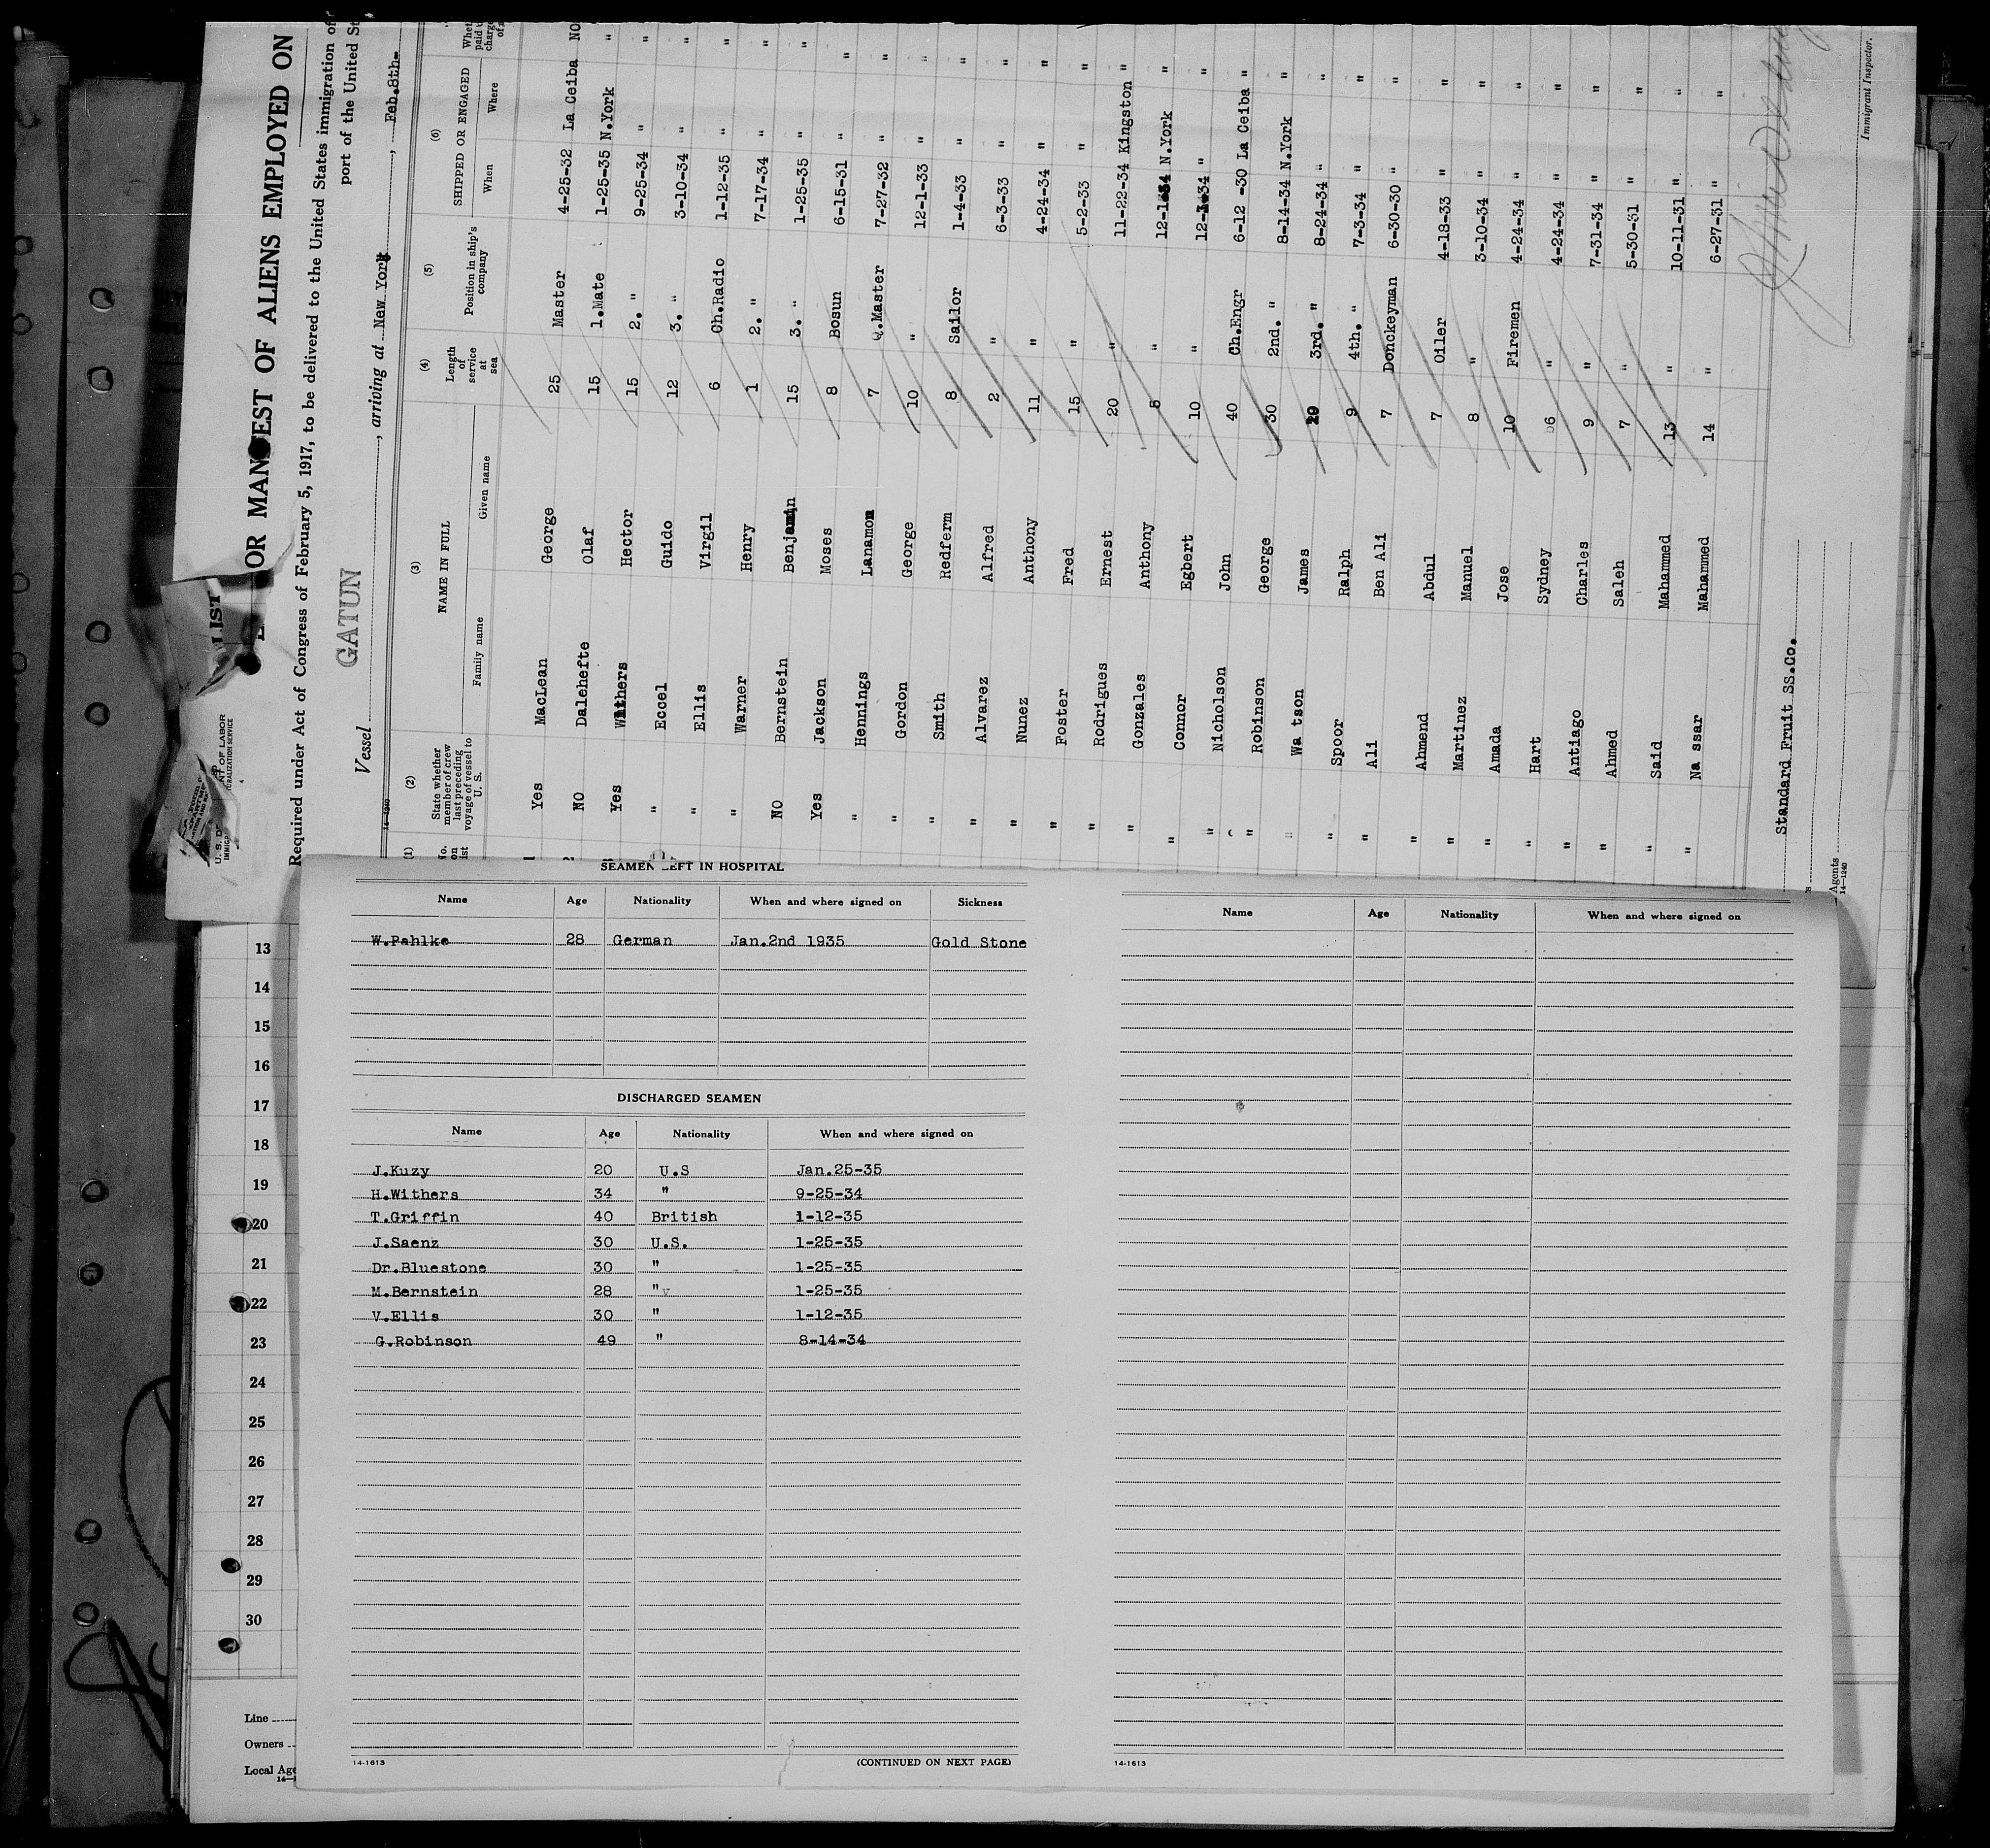 LIST
OR MANIFEST OF ALIENS EMPLOYED ON
Required under Act of Congress of February 5, 1917, to be delivered to the United States immigration of
port of the United St
Vessel GATUN, arriving at New York, Feb.8th-
14—1240
(1) (2) (3) (4) (5) (6)
No. on list
State whether member of crew last preceding voyage of vessel to U. S.
NAME IN FULL
Family name Given name
Length of service at sea
Position in ship's company
SHIPPED OR ENGAGED
When Where
Yes MacLean George 25 Master 4-25-32 La Ceiba NO
NO Dalehefte Olaf 15 1.Mate 1-25-35 N.York "
Yes Withers Hector 15 2. " 9-25-34 " "
" Eccel Guido 12 3. " 3-10-34 " "
" Ellis Virgil 6 Ch.Radio 1-12-35 " "
" Warner Henry 1 2. " 7-17-34 " "
NO Bernstein Benjamin 15 3. " 1-25-35 " "
Yes Jackson Moses 8 Bosun 6-15-31 " "
" Hennings Lanamon 7 Q.Master 7-27-32 " "
" Gordon George 10 " 12-1-33 " "
" Smith Redferm 8 Sailor 1-4-33 " "
" Alvarez Alfred 2 " 6-3-33 " "
" Nunez Anthony 11 " 4-24-34 " "
" Foster Fred 15 " 5-2-33 " "
" Rodrigues Ernest 20 " 11-22-34 Kingston "
" Gonzales Anthony 5 " 12-1-34 N.York "
" Connor Egbert 10 " 12-1-34 " "
" Nicholson John 40 Ch.Engr 6-12 -30 La Ceiba "
" Robinson George 30 2nd. " 8-14-34 N.York "
" Wa tson James 20 3rd. " 8-24-34 " "
" Spoor Ralph 9 4th. " 7-3-34 " "
" Ali Ben Ali 7 Donckeyman 6-30-30 " "
" Ahmend Abdul 7 Oiler 4-18-33 " "
" Martinez Manuel 8 " 3-10-34 " "
" Amada Jose 10 Firemen 4-24-34 " "
" Hart Sydney 6 " 4-24-34 " "
" Antiago Charles 9 " 7-31-34 " "
" Ahmed Saleh 7 " 5-30-31 " "
" Said Mahammed 13 " 10-11-31 " "
" Na ssar Mahammed 14 " 6-27-31 " "
Standard Fruit SS.Co.
Agents
14—1240
Immigrant Inspector.
SEAMEN LEFT IN HOSPITAL
Name Age Nationality When and where signed on Sickness
W.Pahlke 28 German Jan.2nd 1935 Gold Stone
DISCHARGED SEAMEN
Name Age Nationality When and where signed on
J.Kuzy 20 U.S Jan.25-35
H.Withers 34 " 9-25-34
T.Griffin 40 British 1-12-35
J.Saenz 30 U.S. 1-25-35
Dr.Bluestone 30 " 1-25-35
M.Bernstein 28 " 1-25-35
V.Ellis 30 " 1-12-35
G.Robinson 49 " 8-14-34
14-1613
(CONTINUED ON NEXT PAGE)
Name Age Nationality When and where signed on
14-1613
13
14
15
16
17
18
19
20
21
22
23
24
25
26
27
28
29
30
Line
Owners
Local Age